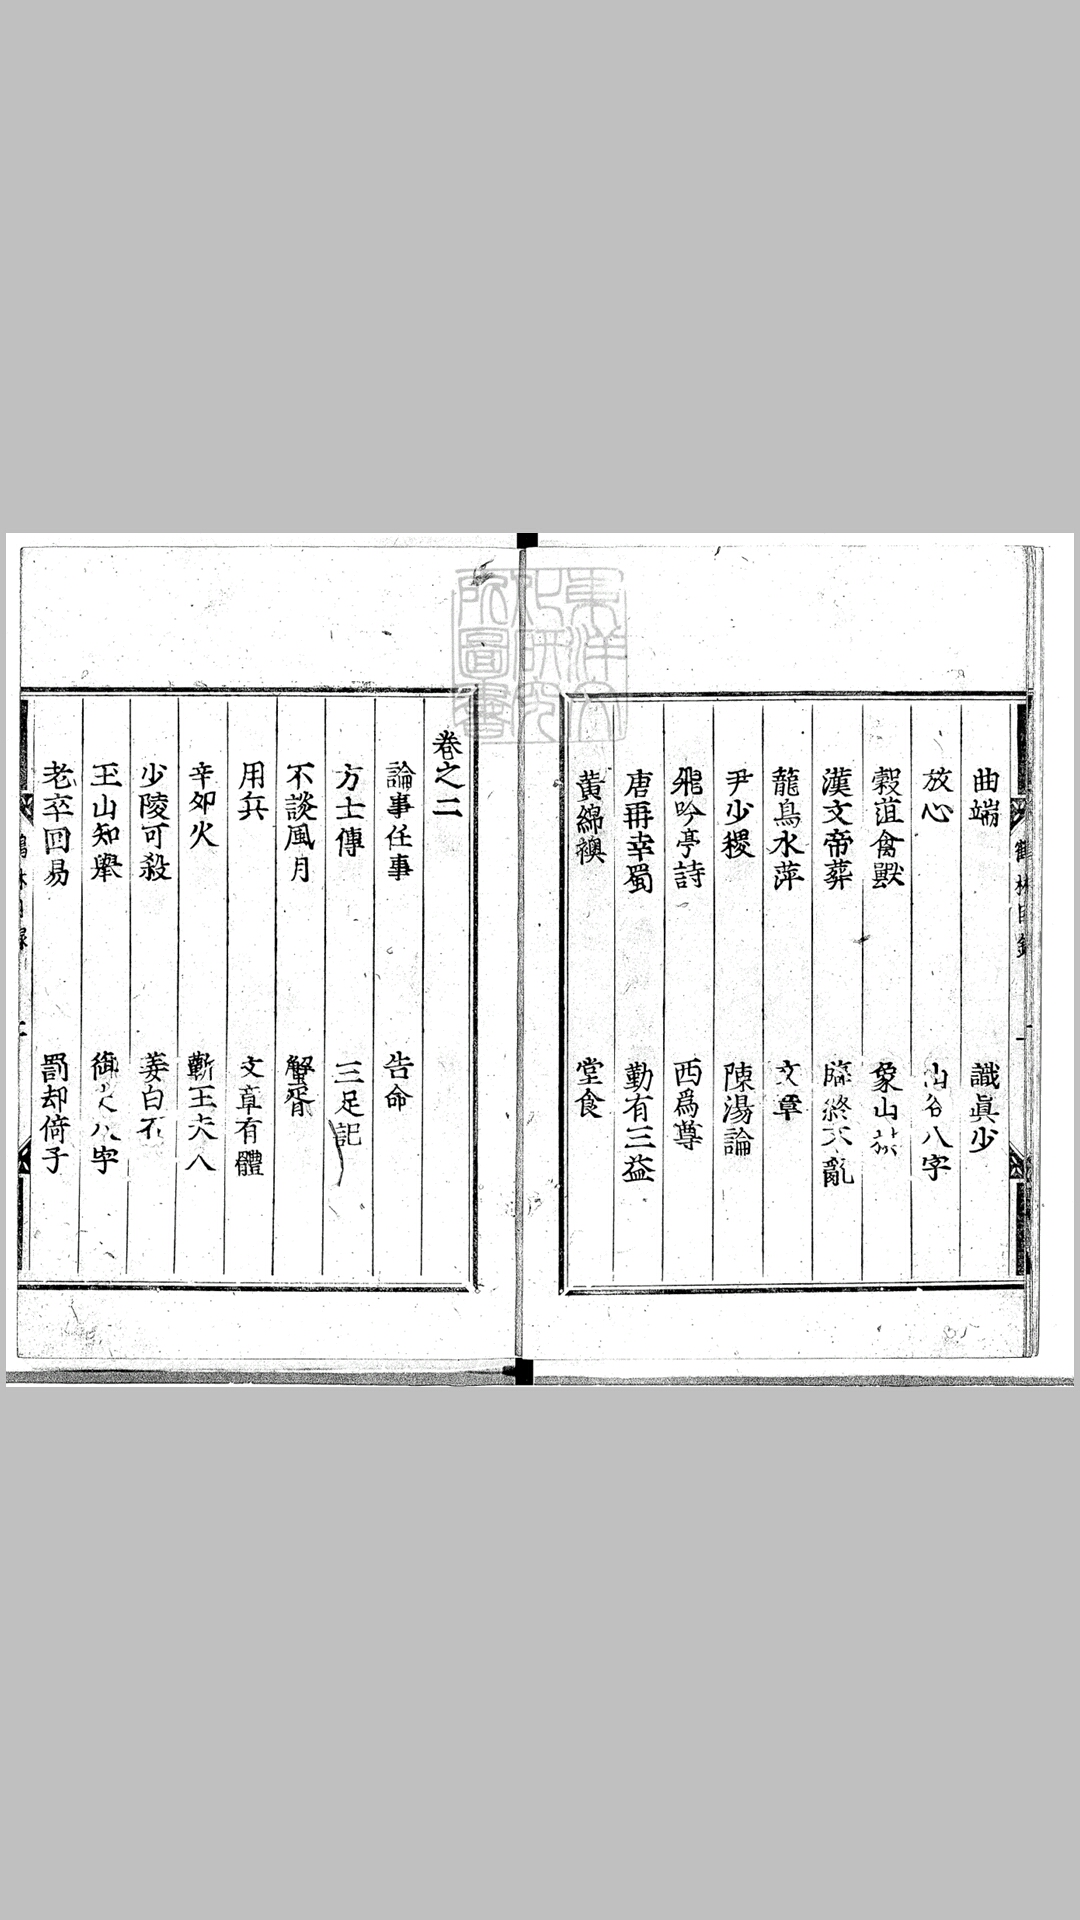 曲端 識眞少
放心 山谷八字
穀菹禽獸 象山
漢文帝葬 臨終不亂
龍鳥水萍 文章
尹少稷 陳湯論
飛吟亭詩 西爲尊
唐再幸蜀 勤有三益
黃綿襖 堂食
卷之二
論事任事 告命
方士傳 三足記
不談風月 蟹胥
用兵 文章有體
辛卯火 蘄王夫人
少陵可殺 姜白石
玉山知舉 八字
老卒回易 罰却倚子
東洋文化研究所圖書